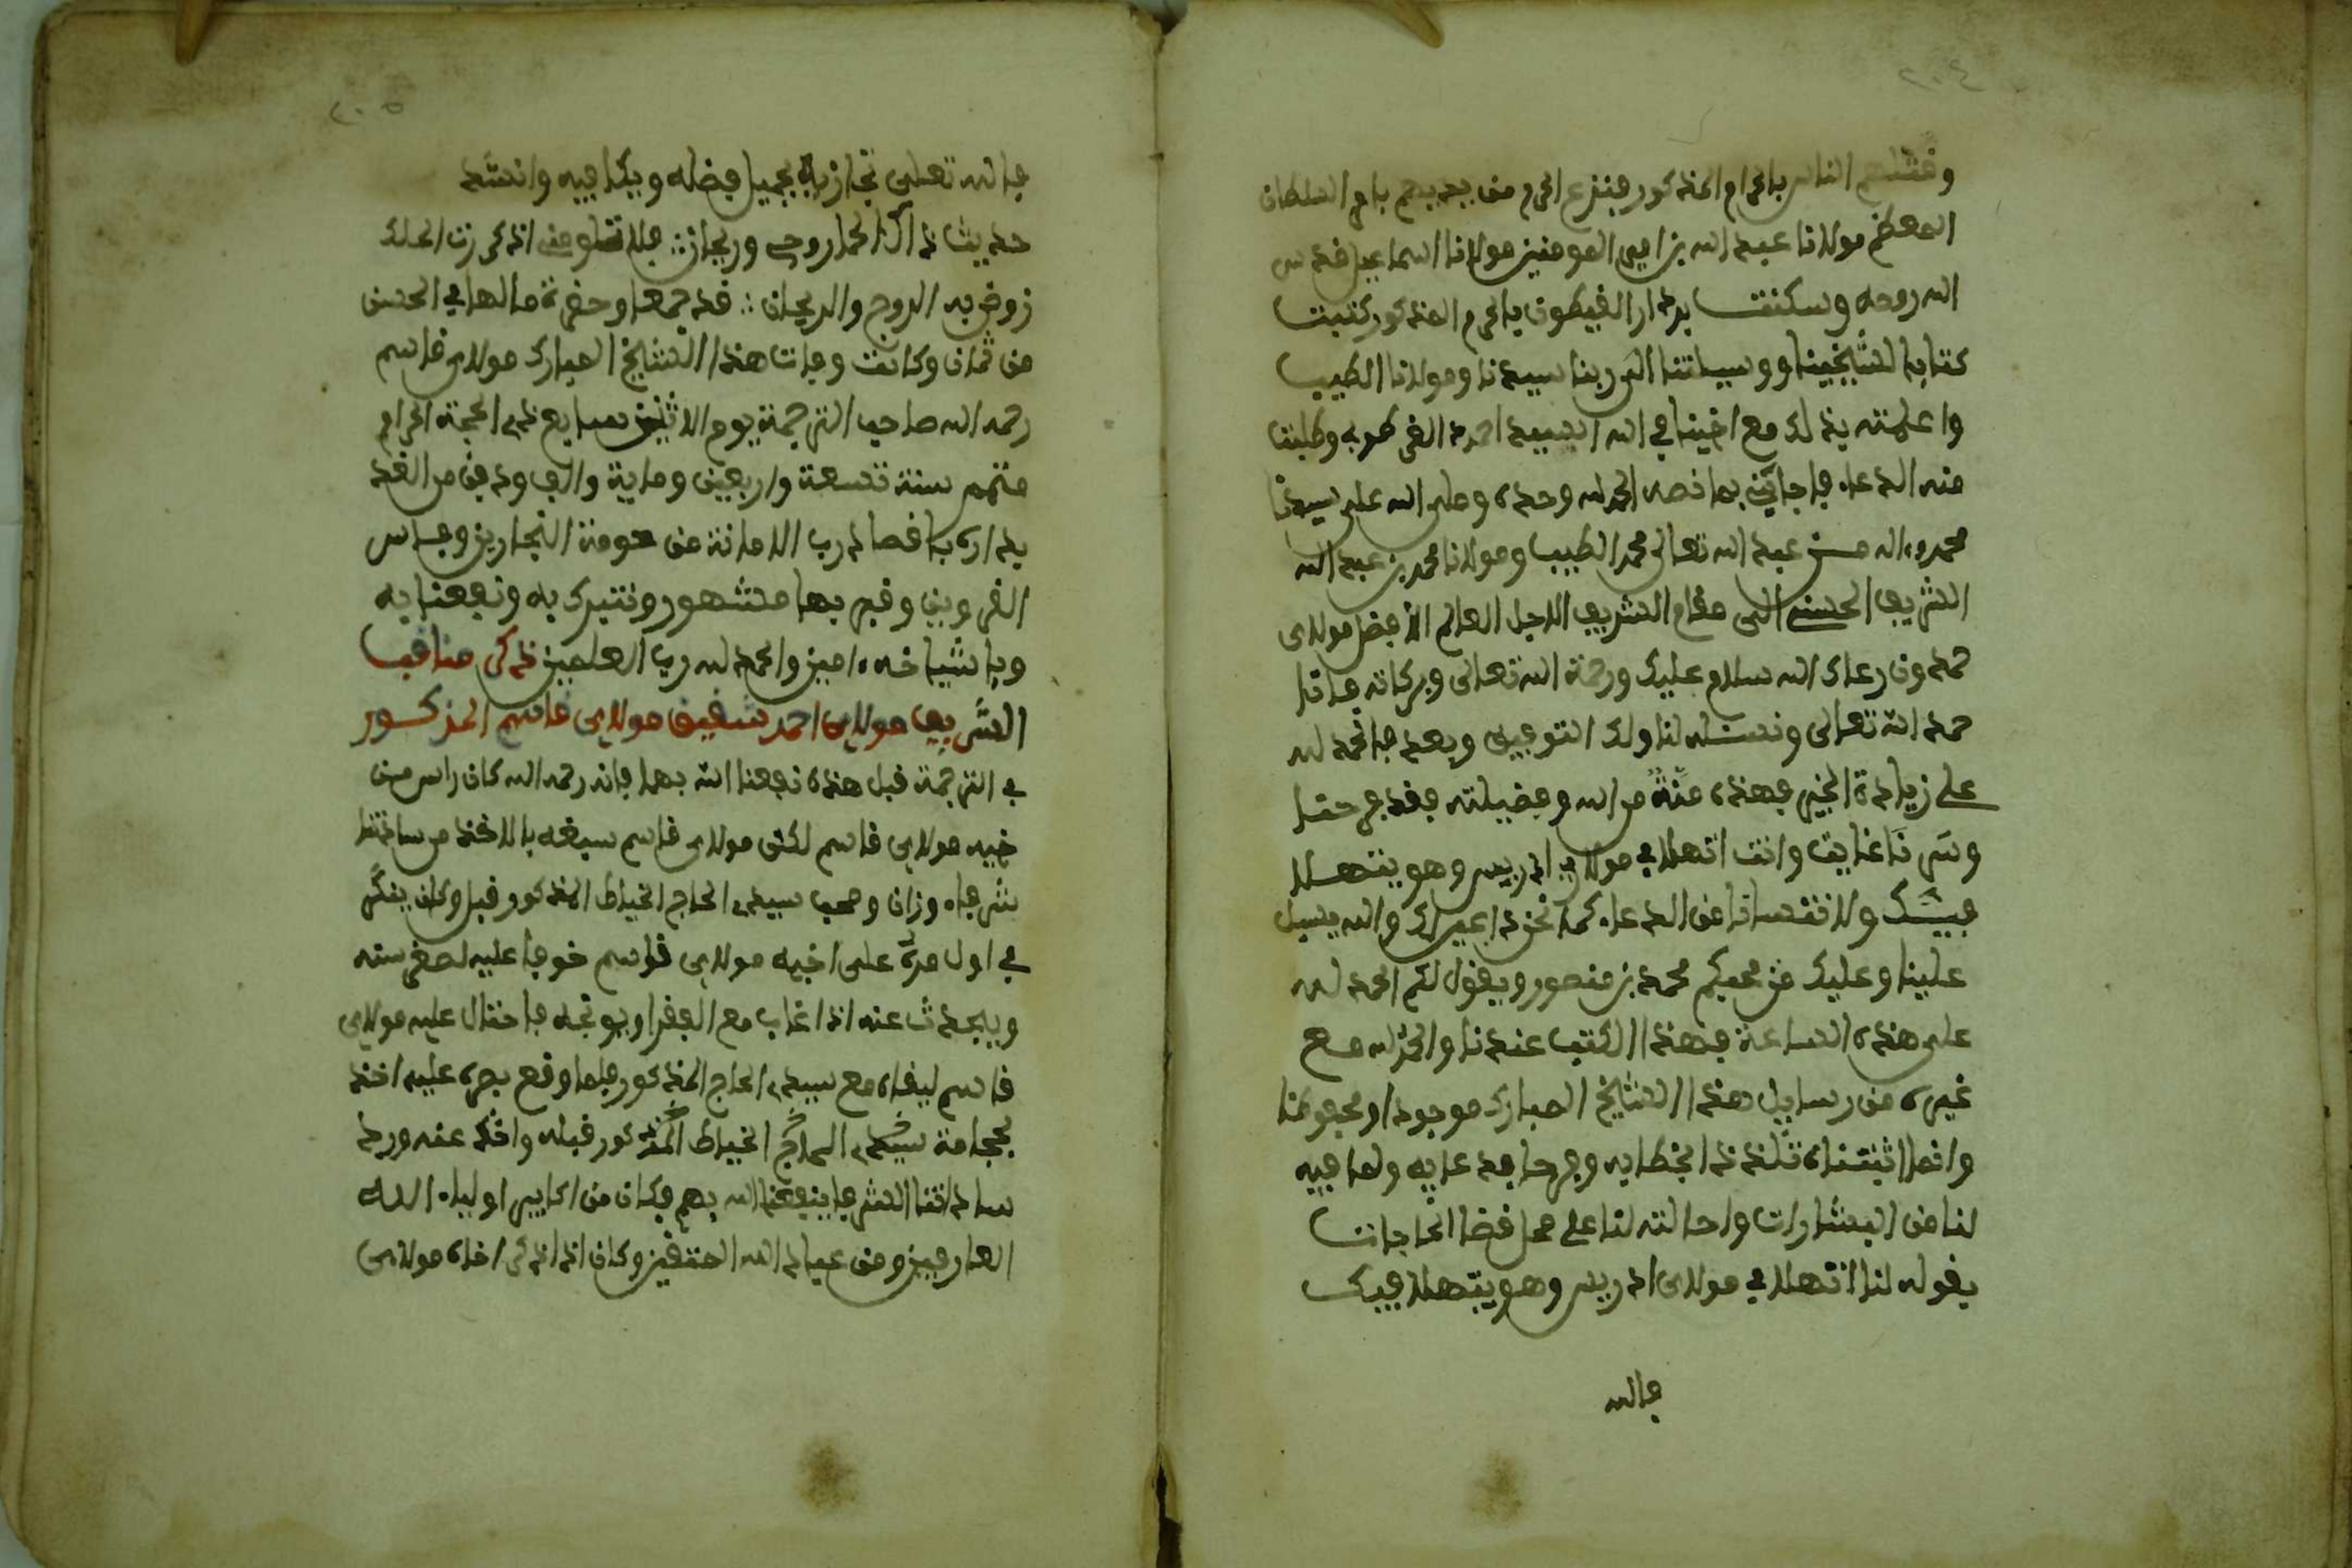 ٢٠٤
وقتلهم الناس بالحرم المذكور فنزع الحرم من يديهم بامر السلطان
المعظم مولانا عبد الله بن امير المومنين مولانا اسماعيل قدس
الله روحه وسكنت بدار القيطون بالحرم المذكور كتبت
كتابا لشيخنا ووسيلتنا الى ربنا سيدنا ومولانا الطيب
واعلمته بذلك مع اخينا في الله السيد احمد الغر وطلبت
منه الدعاء فاجابني بما نصه الحمد لله وحده وصلى الله على سيدنا
محمد واله من عبد الله تعالى محمد الطيب ومولانا محمد بن عبد الله
الشريف الحسني الى مقام الشريف الاجل العالم الافضل مولاي
حمدون رعاك الله سلام عليك ورحمة الله تعالى وبركاته
حمد الله تعالى ونسئله لنا ولك التوفيق وبعد فالحمد لله
على زيادة الخير فهذه منة من الله وفضيلته فقد فرحنا
وسرنا غاية وانت اتهلا في مولاي ادريس وهو يتهلا
فيك ولا تنسانا من الدعاء كما نحن داعين لك والله يسبل
علينا وعليك من محبكم محمد بن منصور ويقول لكم الحمد لله
على هذه الساعة فهذا الكتب عندنا والحمد لله مع
غيره من رسايل هذا الشيخ المبارك موجودا ومحفوظا
وانما اثبتناه تلذذا بخطابه وفرحا بدعايه ولما فيه
لنا من البشارات واحالته لنا على محل قضا الحاجات
بقوله لنا اتهلا في مولاي ادريس وهو يتهلا فيك
فالله
٢٠٥
فالله تعلى تجازيه بجميل فضله ويكافيه وانشد
حديث ذاك الحما روحي وريحاني فلا تلومن اذكرت
زوض به الروح والريحان قد جمعا وحضرة ما لها في الحسن
من ثمان وكانت وفات هذا الشيخ المبارك مولاي قاسم
رحمه الله صاحب الترجمة يوم الاثنين سابع ذي الحجة الحرام
متمم سنة تسعة واربعين وماية والف ودفن من الغد
بداره باقصا درب الامانة من حومة النجارين وفاس
القرويين وقبره بها مشهور ونتبرك به ونفعنا به
وباشياخه ءامين والحمد لله رب العلمين ذكر مناقب
الشريف مولاي احمد شقيق مولاي قاسم المذكور
في الترجمة قبل هذه نفعنا الله بهما فانه رحمه الله كان راس من
خيه مولاي قاسم لكن مولاي قاسم سبقه بالاخذ من ساداتنا
شرفاء وزان وصحب سيدي الحاج الخياط المذكور قبل وكان ينكر
في اول مرة على اخيه مولاي قاسم خوفا عليه لصغر سنه
ويبحث عنه اذا غاب مع الفقرا ويوبخه فاحتال عليه مولاي
قاسم ليقاه مع سيدي الحاج المذكور فلما وقع بصره عليه اخذ
بمجامع سيدي الحاج الخياط المذكور قبله واخذ عنه ورد
ساداتنا الشرفا ينفعنا الله بهم فكان من اكابر اولياء الله
العارفين ومن عباد الله المتقين وكان اذا ذكر اخاه مولاي